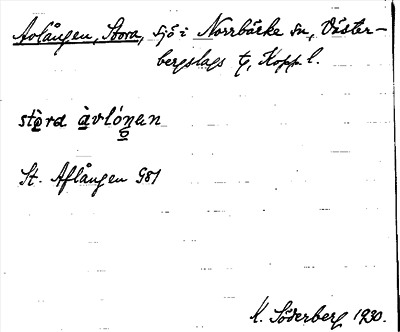 Avlången, Stora, sjö i Norrbärke sn, Väster-
bergslags tg, Kopp l.
stòra àvlóŋen
St. Aflången G81
K. Söderberg 1930.